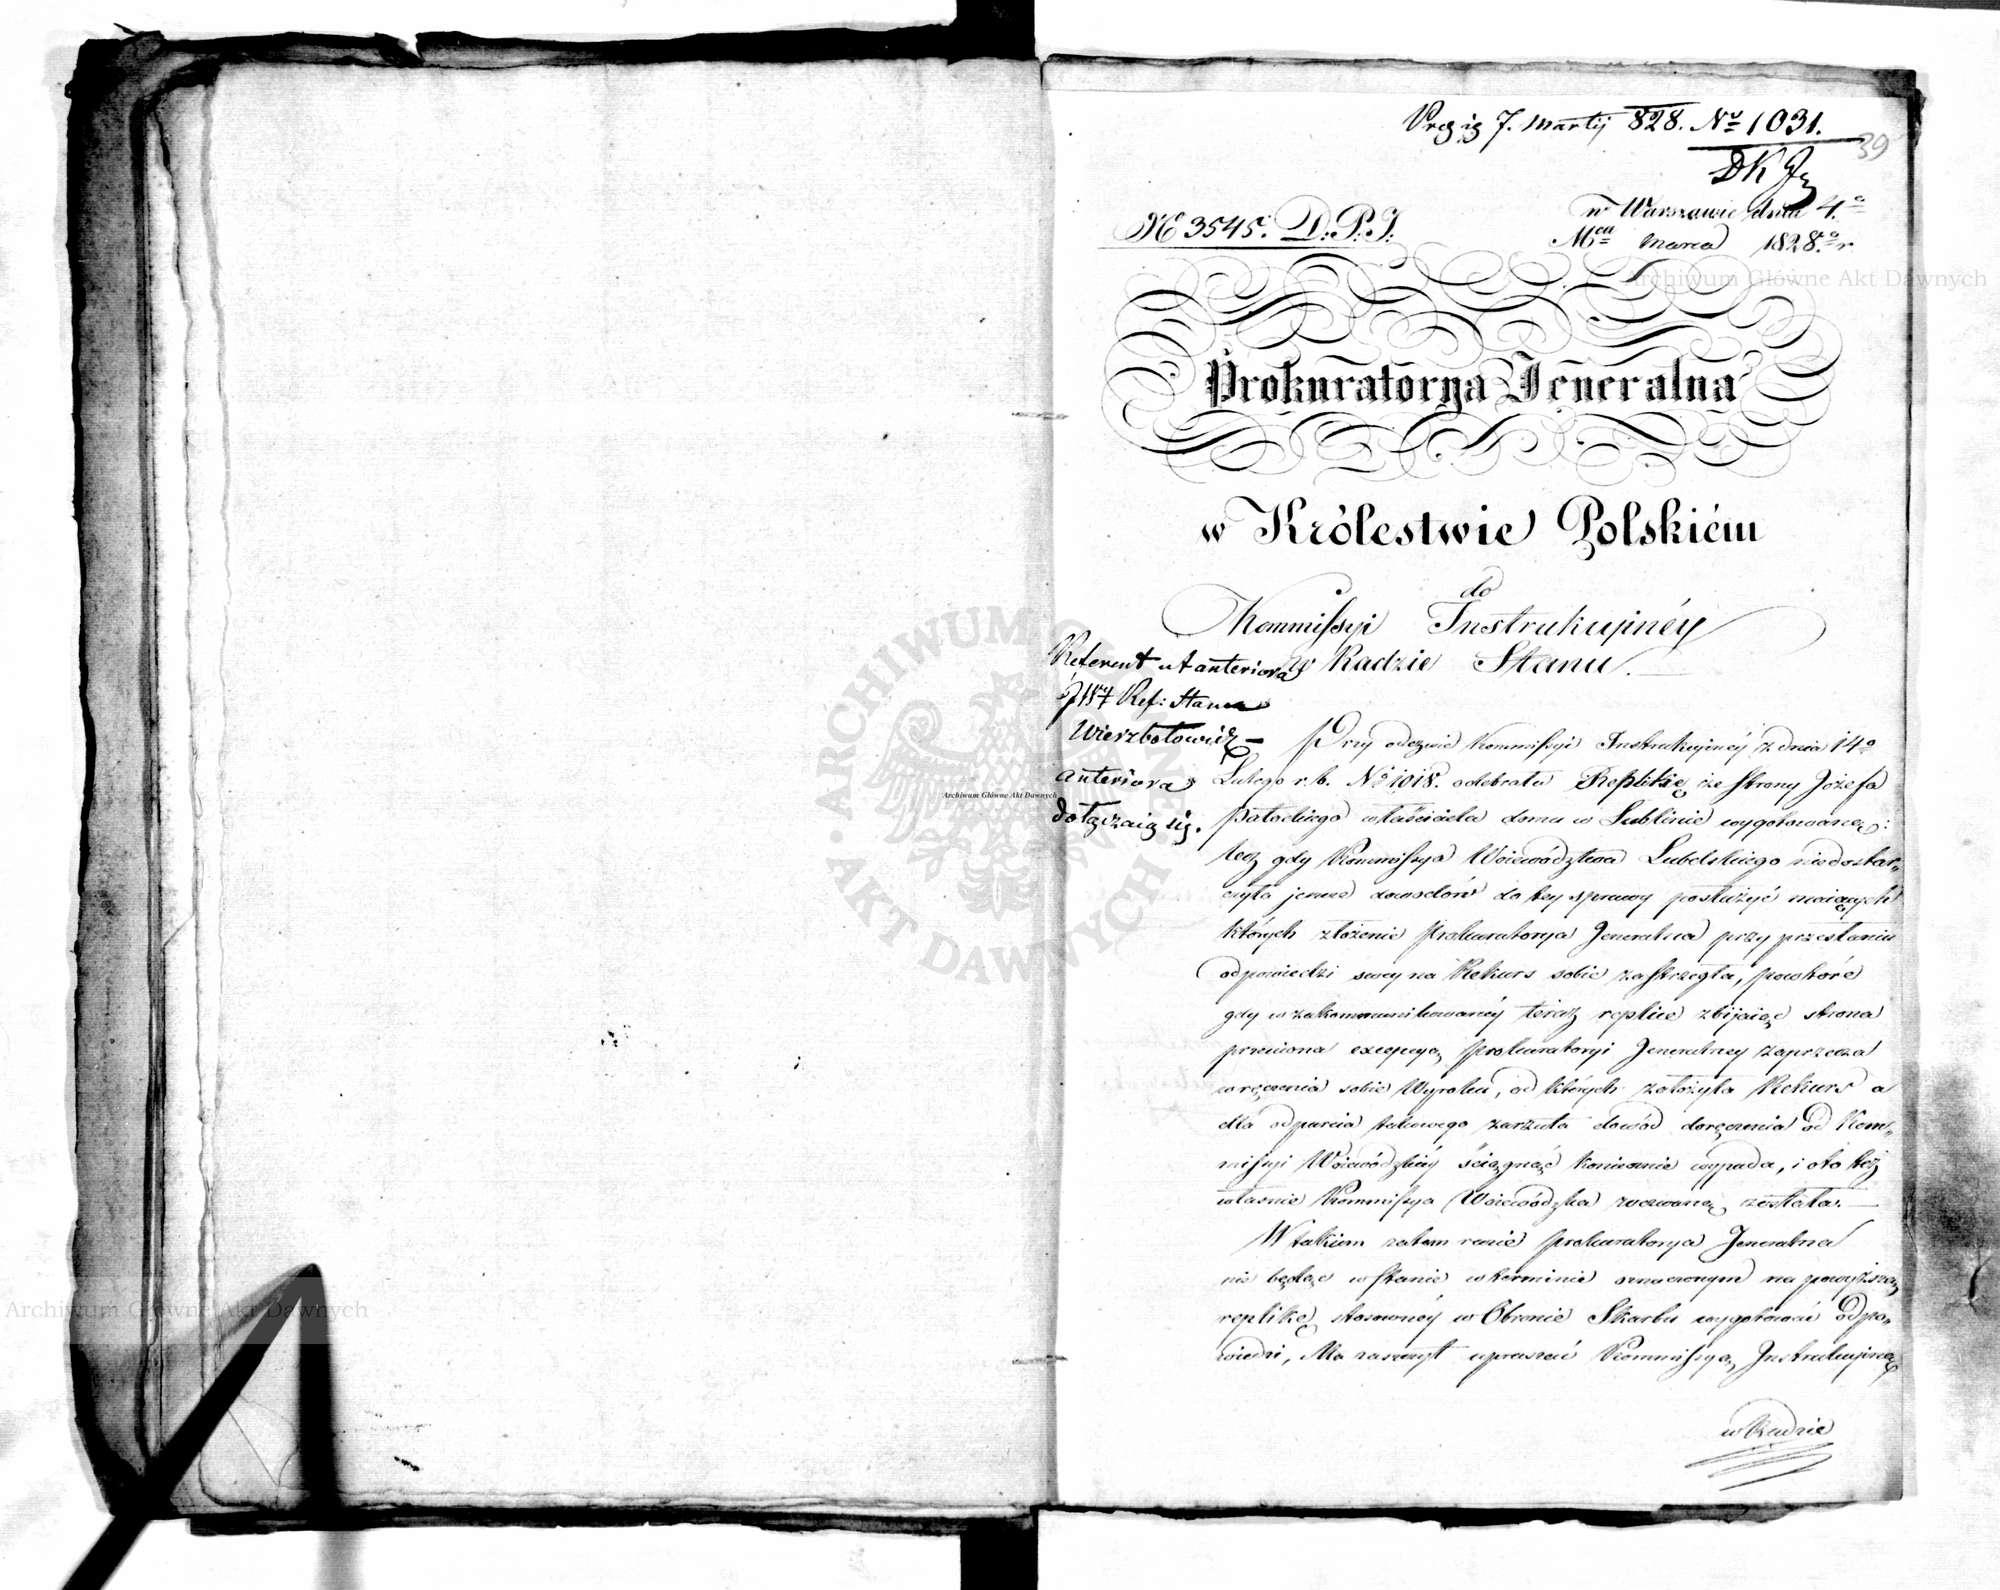 7. Martij 828. No 1031.
39
N 3545. D.P.I.
w Warszawie dnia 4.o
Mca Marca 1828.o r.
Prokuratorya Jeneralna
w Królestwie Polskiém
do
Kommissyi Instrukcyinéy
w Radzie Stanu.
Referent ut anteriora
Ref: Stanu
Wierzbołowicz
anteriora
dołączaią się.
Przy odezwie Kommissyi Instrukcyinéy z dnia 14o
Lutego r. b. No 1018. odebrała Replikę ze strony Józefa
właściciela domu w Lublinie wygotowaną:
lecz gdy Kommissya Woiewództwa Lubelskiego niedostar„
czyła jeszcze dowodów do tey sprawy posłużyć maiących
których złożenie Prokuratorya Jeneralna przy przesłaniu
odpowiedzi swey na Rekurs sobie zastrzegła, powtóre
gdy w zakommunikowanéy teraz replice zbijaiąc strona
przeciwna excepcyą Prokuratoryi Jeneralney zaprzecza
wręczenia sobie Wyroku, od których założyła Rekurs a
dla odparcia takowego zarzutu dowód doręczenia od Kom„
missyi Woiewódzkiéy ściągnąć koniecznie wypada, i oto też
własnie Kommissya Woiewódzka wezwaną została.
W takim zatem razie Prokuratorya Jeneralna
nie będąc w stanie w terminie oznaczonym na powyższą
replikę stosownéy w Obronie Skarbu wygotować Odpo„
wiedzi, Ma zaszczyt upraszać Kommissyą Instrukcyiną
w Radzie
Archiwum Główne Akt Dawnych
Archiwum Główne Akt Dawnych
Archiwum Główne Akt Dawnych
ARCHIWUM GŁÓWNE AKT DAWNYCH